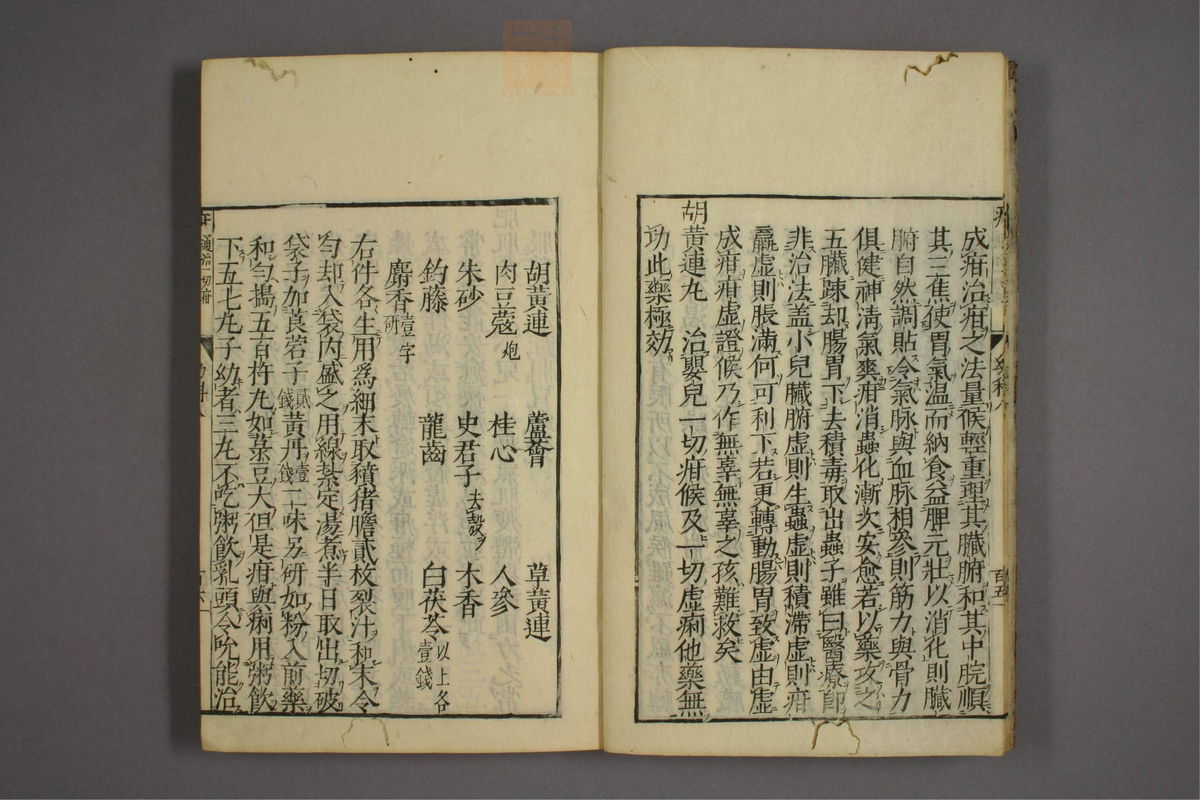 成疳治疳之法量候輕重理其臟腑和其中脘順
其三焦使胃氣温而納食益脾元壯以消化則臟
腑自然調貼令氣脉與血脉相參則筋力與骨力
俱健神清氣爽疳消蟲化漸次安愈若以藥攻之
五臟疎却腸胃下去積毒取出蟲子雖曰醫療即
非治法盖小兒臟腑虚則生蟲虚則積滯虚則疳
羸虚則脹滿何可利下若更轉動腸胃致虚由虚
成疳疳虚證候乃作無辜無辜之孩難救矣
胡黃連丸 治嬰兒一切疳候及一切虚痢他藥無
功此藥極効
胡黃連 蘆薈 草黃連
肉豆蔻炮 桂心 人參
朱砂 史君子去殼 木香
釣藤 龍齒 白茯苓以上各壹錢
麝香壹字研
右件各生用為細末取豶猪膽貳枚裂汁和末令
勻却入袋内盛之用線紮定湯煮半日取出切破
袋子加莨菪子貳錢黃丹壹錢二味另研如粉入前藥
和勻搗五百杵丸如菉豆大但是疳與痢用粥飲
下五七丸子幼者三丸不吃粥飲乳頭令吮能治